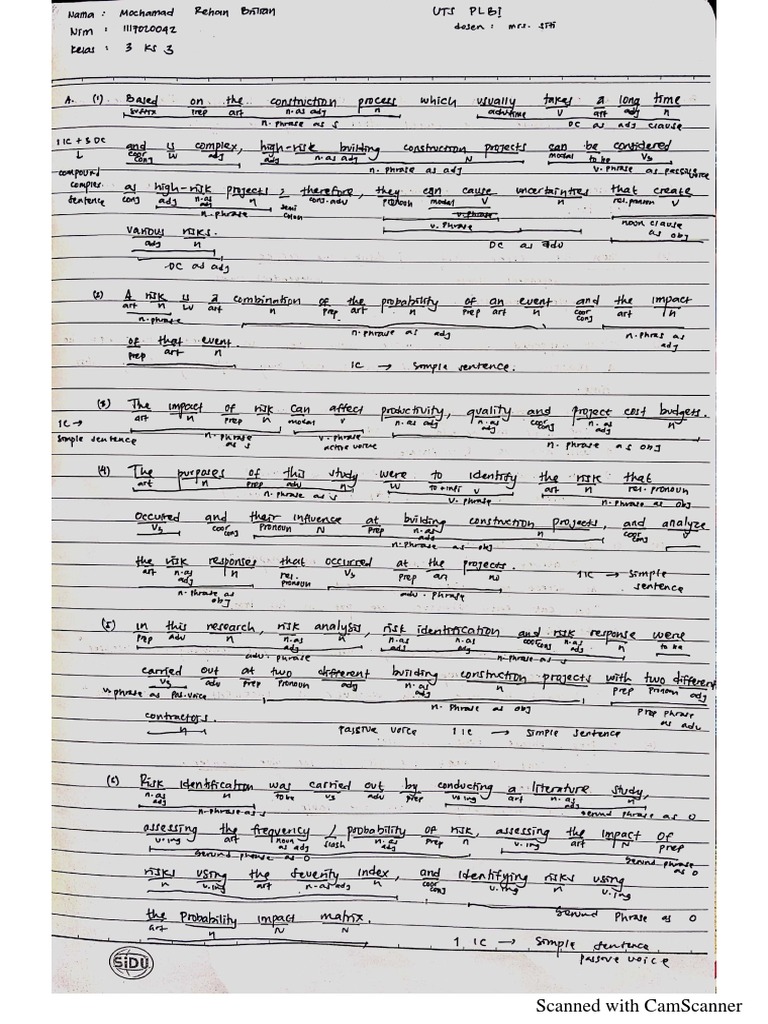 Nama : Mochamad Rehan UTS PLBI
Nim : 1119020042 dosen : mrs. siti
Kelas : 3 KS 3
A. (1) Based on the construction process which usually takes a long time
suffix prep art n. as adj n adv time V art adj n
n. phrase as s DC as adj clause
1 IC + 3 DC and is complex, high-risk building construction projects can be considered
coor conj W adj n. as adj N modal to be V3
n. phrase as adj v. phrase as passive voice
compound
complex as high-risk projects ; therefore, they can cause uncertainties that create
sentence conj adj n. as adj n semi colon conj. adv pronoun modal V n rel. pronoun V
n. phrase v. phrase noun clause as obj
various risks. DC as adv
adj n
DC as adj
(2) A risk is a combination of the probability of an event and the impact
art n W art n prep art n prep art n coor conj art n
n. phrase n. phrase as adj n. phras as adj
of that event. 1C → simple sentence.
prep art n
(3) The impact of risk can affect productivity, quality and project cost budgets.
1C → art n prep n modal v n. as adj n. as adj coor conj n. as adj n
simple sentence n. phrase as s v. phrase active voice n. phrase as obj
(4) The purposes of this study were to identify the risk that
art n prep adv n W to + infi V art n rel. pronoun
n. phrase as s v. phrase n. phrase as obj
occurred and their influence at building construction projects, and analyze
V3 coor conj pronoun N prep n. as adj n coor conj V
n. phrase as obj
the risk responses that occurred at the projects. 1 IC → simple sentence
art n. as adj n rel. pronoun V3 prep art
n. phrase as obj adv. phrase
(5) in this research, risk analysis, risk identification and risk response were
prep adv n n. as adj n n. as adj n. as adj coor conj n. as adj n to be
adv. phrase n. phrase as s
carried out at two different building construction projects with two different
V3 adv prep pronoun adj n. as adj n prep pronoun adj
v. phrase as pas. voice n. phrase as obj prep phrase as adv
contractors. passive voice 1 IC → simple sentence
n
(6) Risk identification was carried out by conducting a literature study,
n. as adj n to be V3 adv prep v. ing art n. as adj n
n. phrase as s gerund phrase as O
assessing the frequency / probability of risk, assessing the impact of
v. ing art noun as adj slash n. as adj prep n v. ing art N prep
gerund phrase as O gerund phrase as O
risks using the severity index, and identifying risks using
n v. ing art n. as adj n coor conj v. ing n v. ing
gerund Phrase as O
the probability impact matrix.
art n N N
1 IC → simple sentence
passive voice
SiDU
Scanned with CamScanner